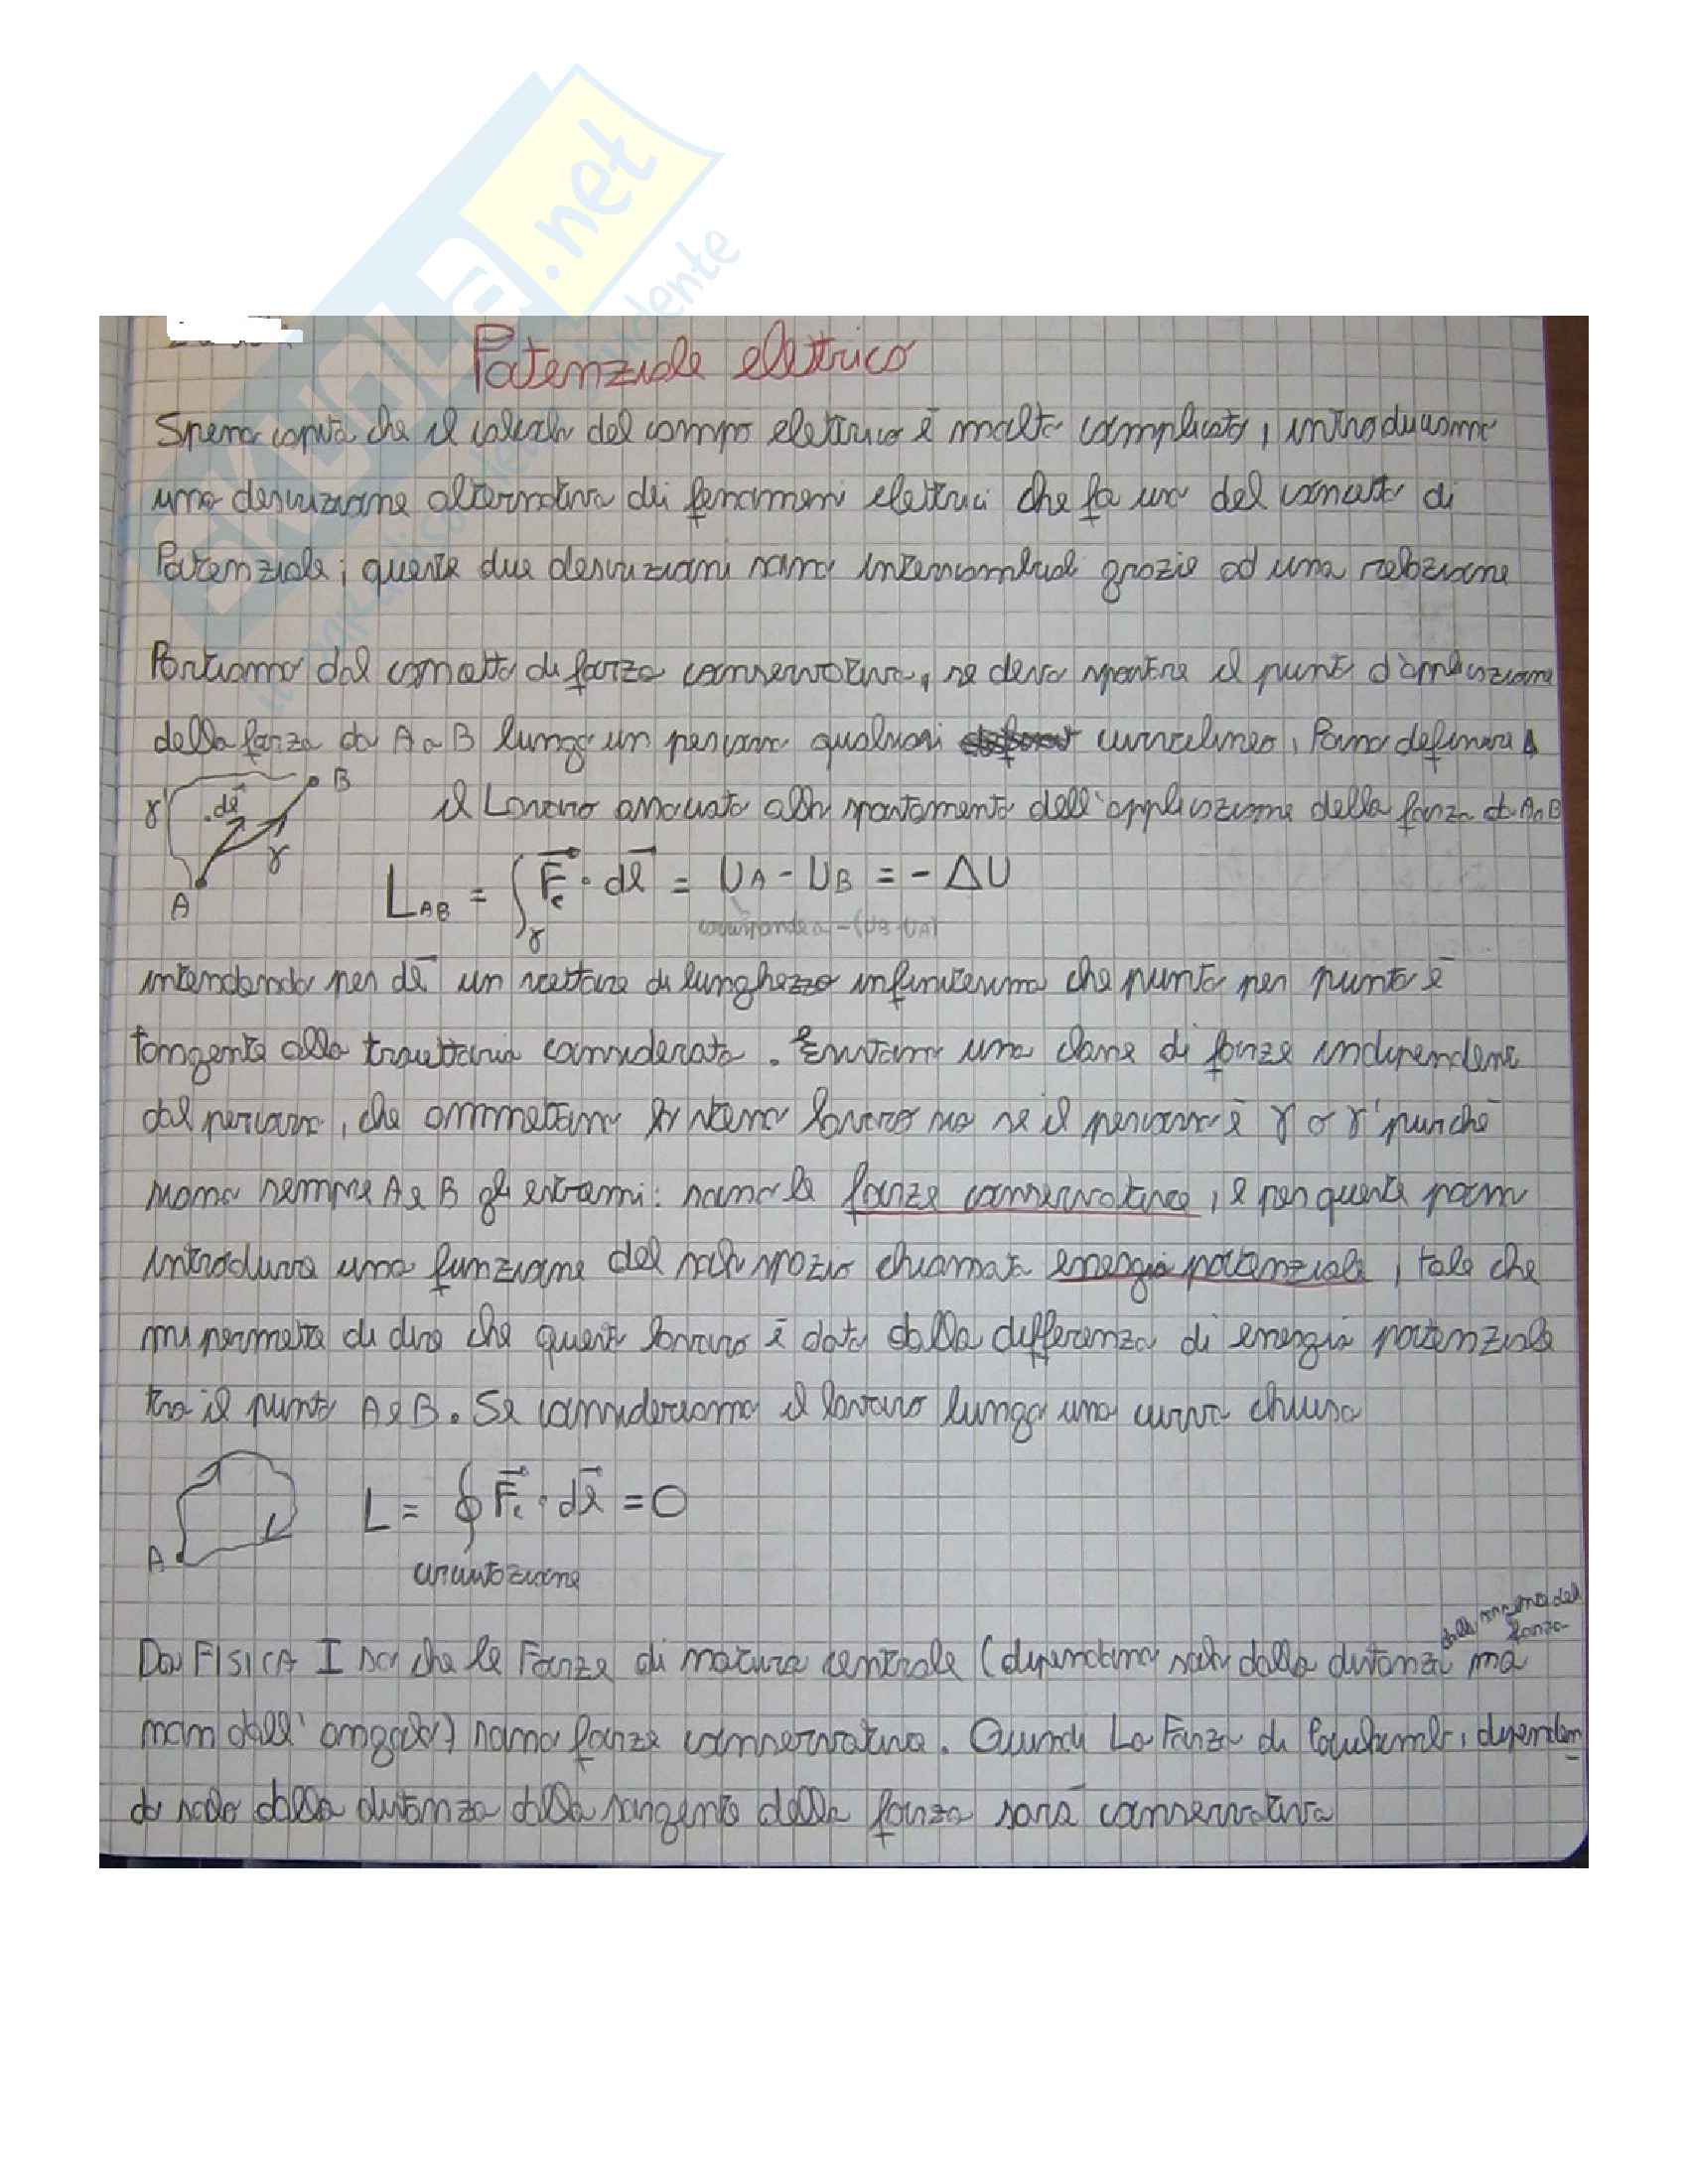 SKUOLA.net
Potenziale elettrico
Spesso capita che il calcolo del campo elettrico è molto complicato, introduciamo
una descrizione alternativa dei fenomeni elettrici che fa uso del concetto di
Potenziale; queste due descrizioni sono intercambiabili grazie ad una relazione
Partiamo dal concetto di forza conservativa, se devo spostare il punto d'applicazione
della forza da A a B lungo un percorso qualsiasi curvilineo, Posso definire
B
γ' dl⃗ il Lavoro associato allo spostamento dell'applicazione della forza da A a B
γ
A L_AB = ∫_γ F⃗e · dl⃗ = U_A - U_B = - ΔU
corrisponde a -(U_B - U_A)
intendendo per dl⃗ un vettore di lunghezza infinitesima che punto per punto è
tangente alla traiettoria considerata. Esistono una classe di forze indipendenti
dal percorso, che ammettono lo stesso lavoro sia se il percorso è γ o γ' purché
siano sempre A e B gli estremi: sono le forze conservative, e per queste posso
introdurre una funzione del solo spazio chiamata energia potenziale, tale che
mi permette di dire che questo lavoro è dato dalla differenza di energia potenziale
tra il punto A e B. Se consideriamo il lavoro lungo una curva chiusa
A L = ∮ F⃗e · dl⃗ = 0
circuitazione
dalla forza
Da FISICA I so che le Forze di natura centrale (dipendono solo dalla distanza ma
non dall'angolo) sono forze conservative. Quindi La Forza di Coulomb, dipenden
do solo dalla distanza dalla sorgente della forza sarà conservativa